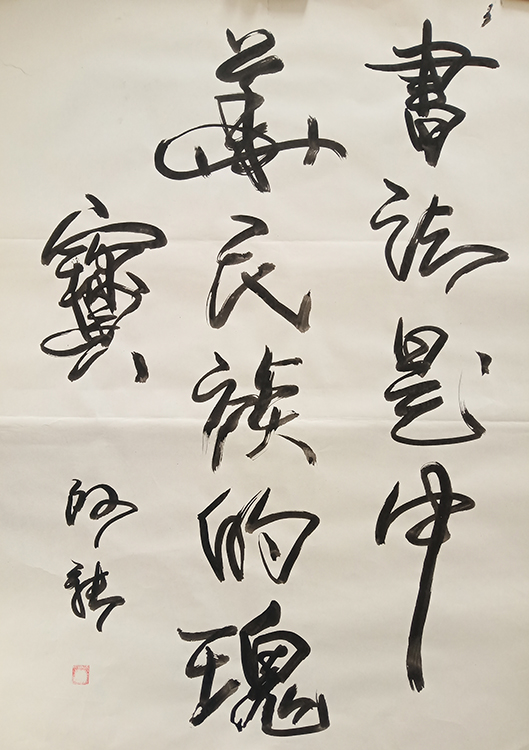 書法是中
華民族的瑰
寶